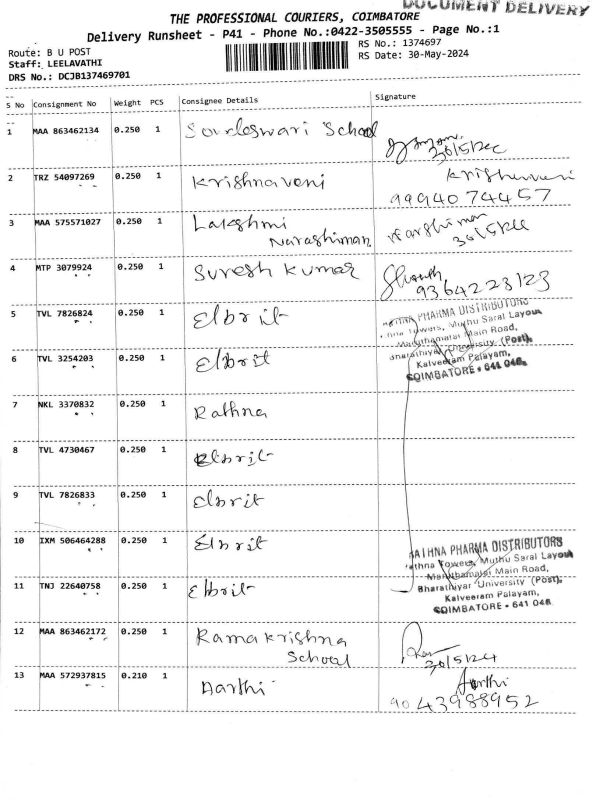 DOCUMENT DELIVERY
THE PROFESSIONAL COURIERS, COIMBATORE
Delivery Runsheet - P41 - Phone No.:0422-3505555 - Page No.:1
Route: B U POST
Staff: LEELAVATHI
DRS No.: DCJB137469701
RS No.: 1374697
RS Date: 30-May-2024
S No Consignment No Weight PCS Consignee Details Signature
1 MAA 863462134 0.250 1 School
30/5/24
2 TRZ 54097269 0.250 1 Krishnaveni Krishnaveni
9994074457
3 MAA 575571027 0.250 1 Lakshmi
Narashiman 30/5/24
4 MTP 3079924 0.250 1 Suresh Kumar
9364223123
5 TVL 7826824 0.250 1 Elbrit
PHARMA DISTRIBUTORS
Towers, Muthu Saral Layout
Maruthamalai Main Road,
6 TVL 3254203 0.250 1 Elbrit
Bharathiyar University (Post),
Kalveeram Palayam,
COIMBATORE - 641 046.
7 NKL 3370832 0.250 1 Rathna
8 TVL 4730467 0.250 1 Elbrit
9 TVL 7826833 0.250 1 Elbrit
10 IXM 506464288 0.250 1 Elbrit
RATHNA PHARMA DISTRIBUTORS
Rathna Towers, Muthu Saral Layout
Maruthamalai Main Road,
11 TNJ 22640758 0.250 1 Elbrit
Bharathiyar University (Post),
Kalveeram Palayam,
COIMBATORE - 641 046.
12 MAA 863462172 0.250 1 Ramakrishna
School 30/5/24
13 MAA 572937815 0.210 1 Aarthi Aarthi
9043988952